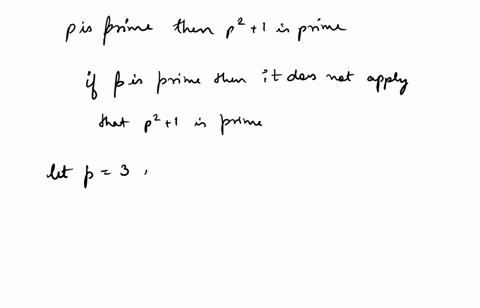 p is prime then p² + 1 is prime
if p is prime then it does not apply
that p² + 1 is prime
let p = 3 ,